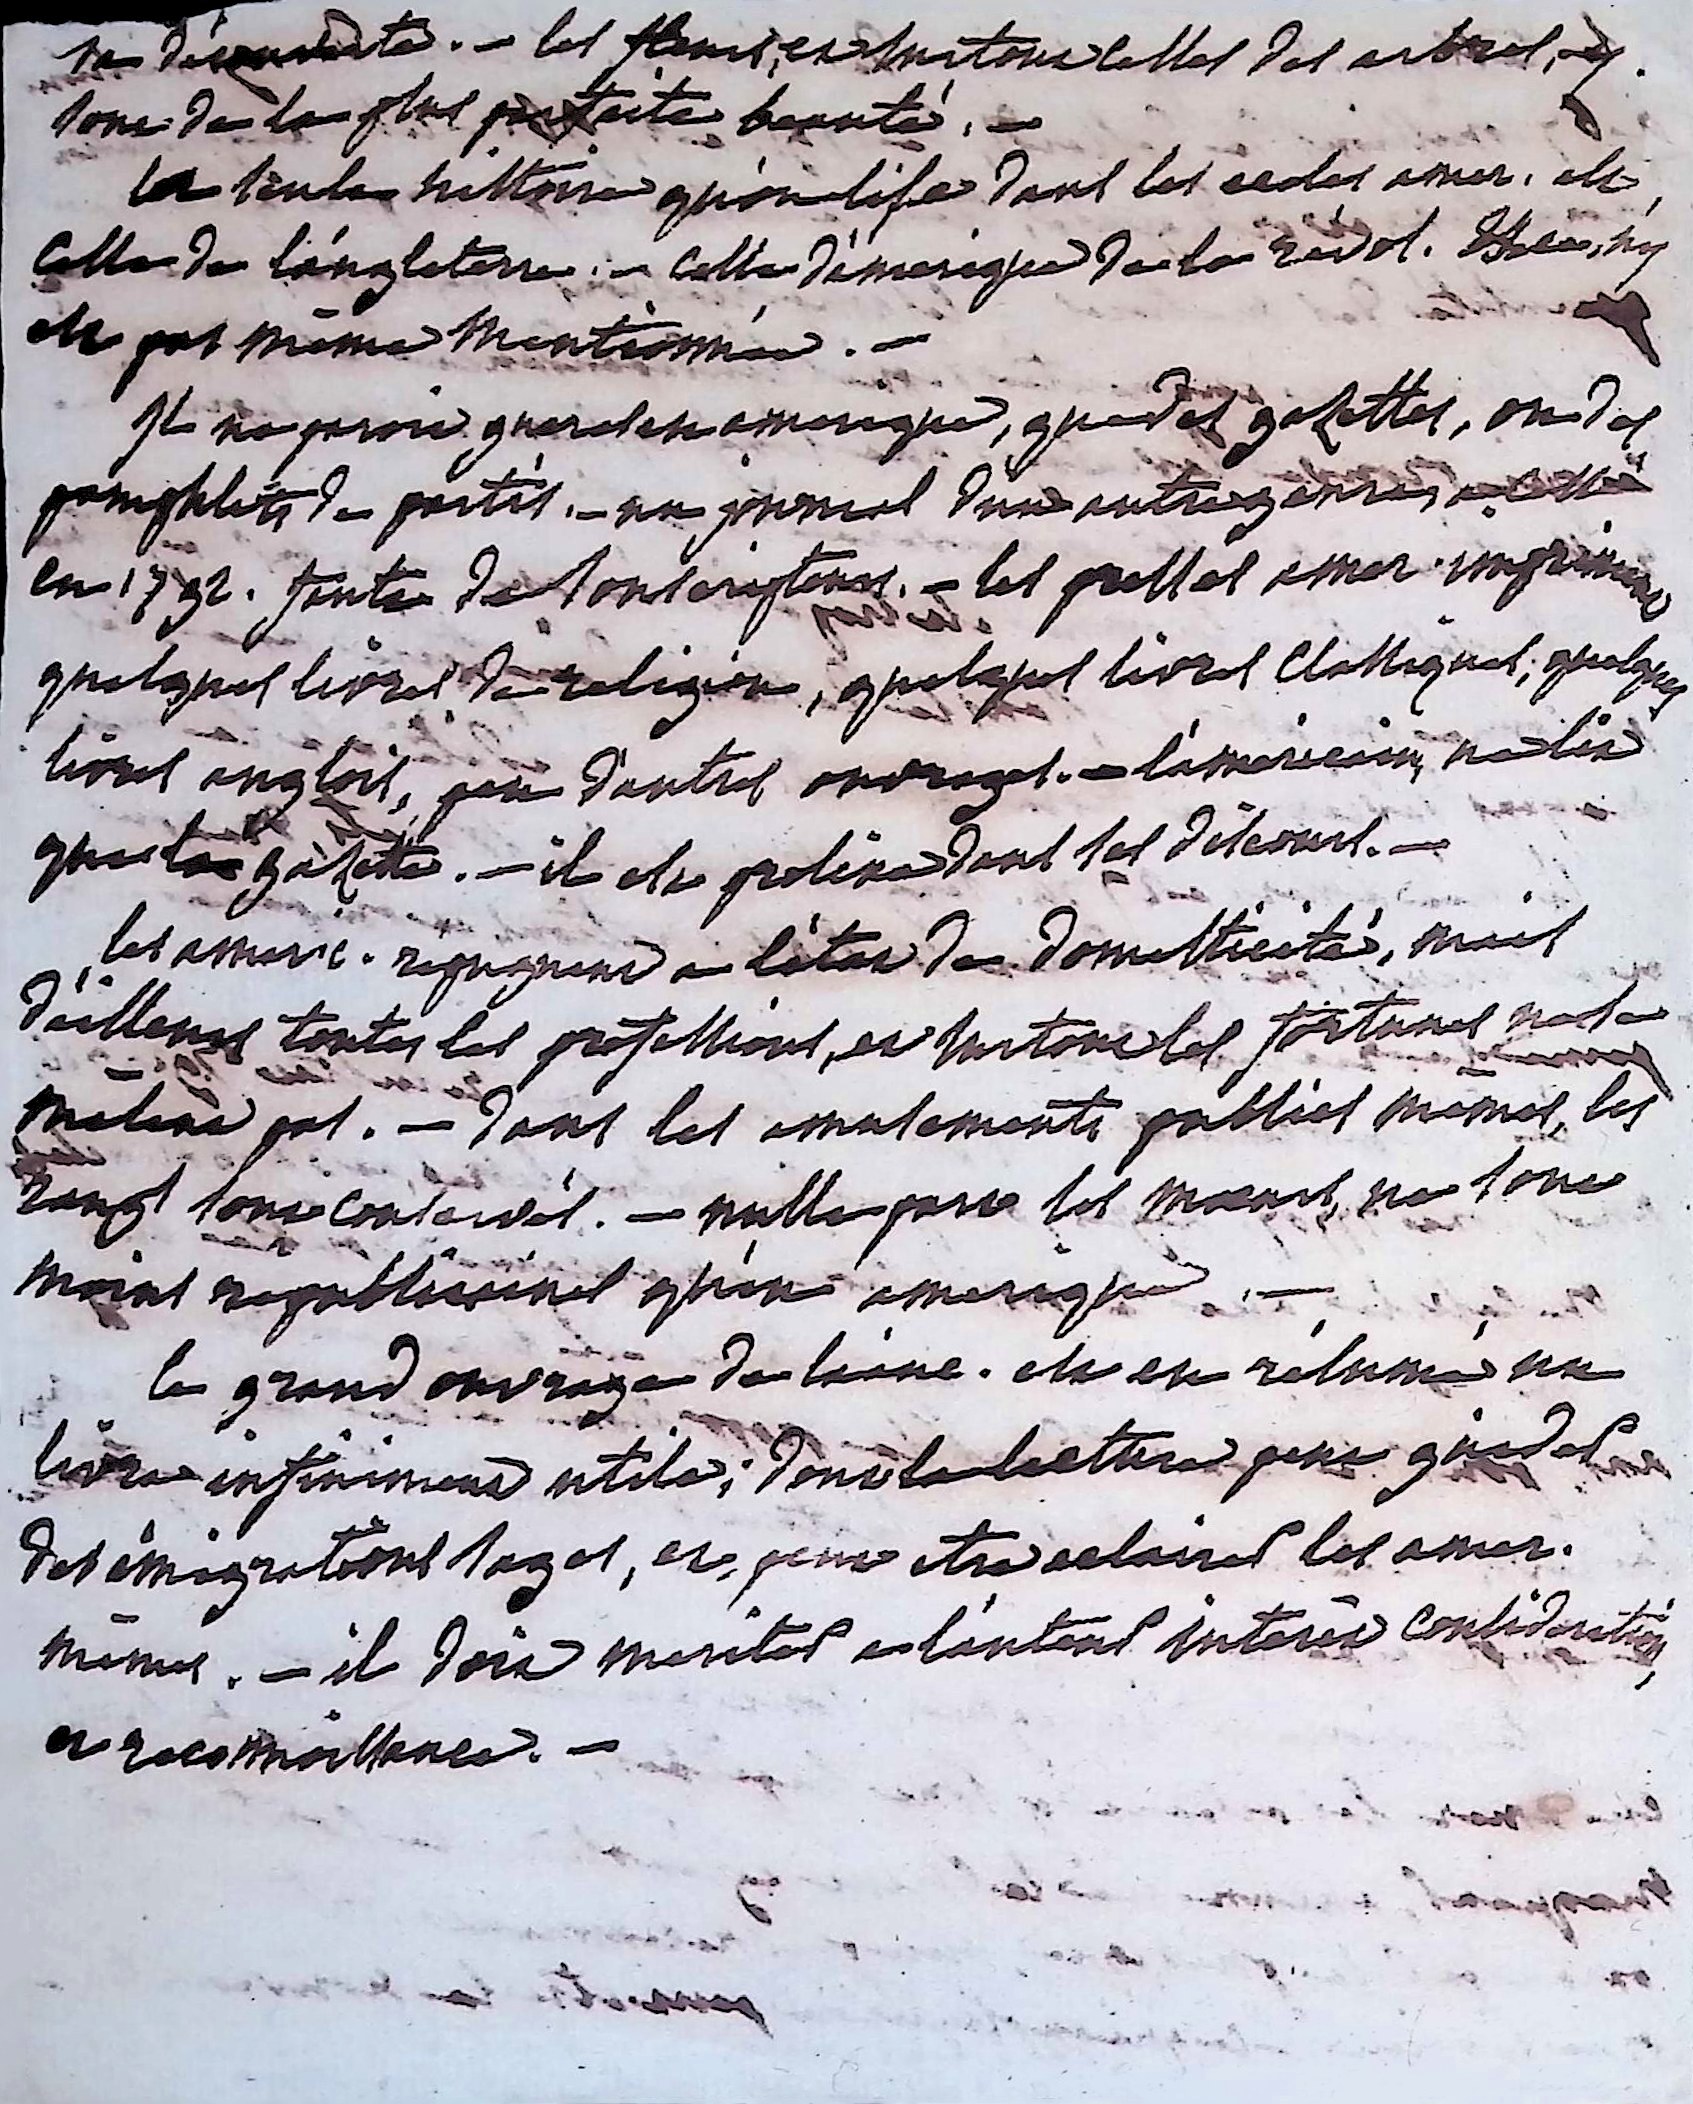 sa découverte. — les fleurs, et surtout celles des arbres, y
sont de la plus parfaite beauté. —
la seule histoire qu'on lise dans les ecoles amer. est
celle de l'angleterre. — celle d'amerique de la révol. n'y
est pas même mentionnée. —
Il ne paroit gueres en amerique, que des gazettes, ou des
pamphlets de partis. — un journal d'un autre genre, a cessé
en 1792. faute de souscripteurs. — les presses amer. impriment
quelques livres de religion, quelques livres classiques, quelques
livres anglois, peu d'autres ouvrages. — l'americain, ne lit
que la gazette. — il est prolixe dans ses discours. —
les americ. repugnent a l'état de domesticité, mais
d'ailleurs toutes les professions, et surtout les fortunes ne se
mêlent pas. — dans les amusements publics mêmes, les
rangs sont conservés. — nulle part les moeurs, ne sont
moins républicaines qu'en amerique. —
le grand ouvrage de lianc. est en résumé un
livre infiniment utile; dont la lecture peut guider
des émigrations sages, et, peut etre eclairer les amer.
mêmes. — il doit meriter a l'auteur interêt considération,
et reconnoissance. —